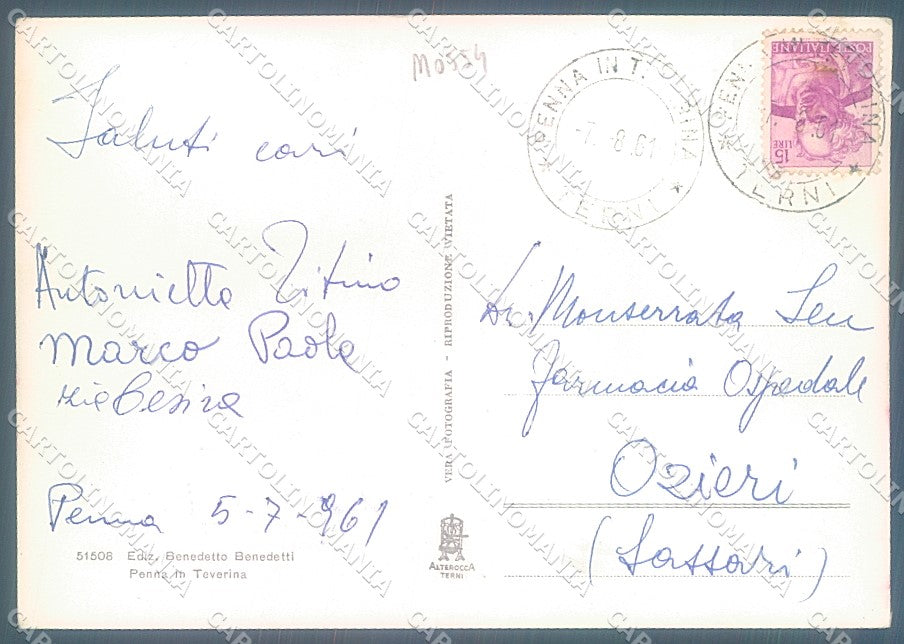 Mo554
Saluti cari
Antonietta Titino
Marco Paola
zia Cesira
Penna 5-7-961
51508 Ediz. Benedetto Benedetti
Penna in Teverina
VERA FOTOGRAFIA - RIPRODUZIONE VIETATA
ALTEROCCA
TERNI
PENNA IN TEVERINA
-7.-8.61
* TERNI *
PENNA IN TEVERINA
* TERNI *
POSTE ITALIANE
15
LIRE
Dr. Monserrata Seu
Farmacia Ospedale
Ozieri
(Sassari)
CARTOLINOMANIA